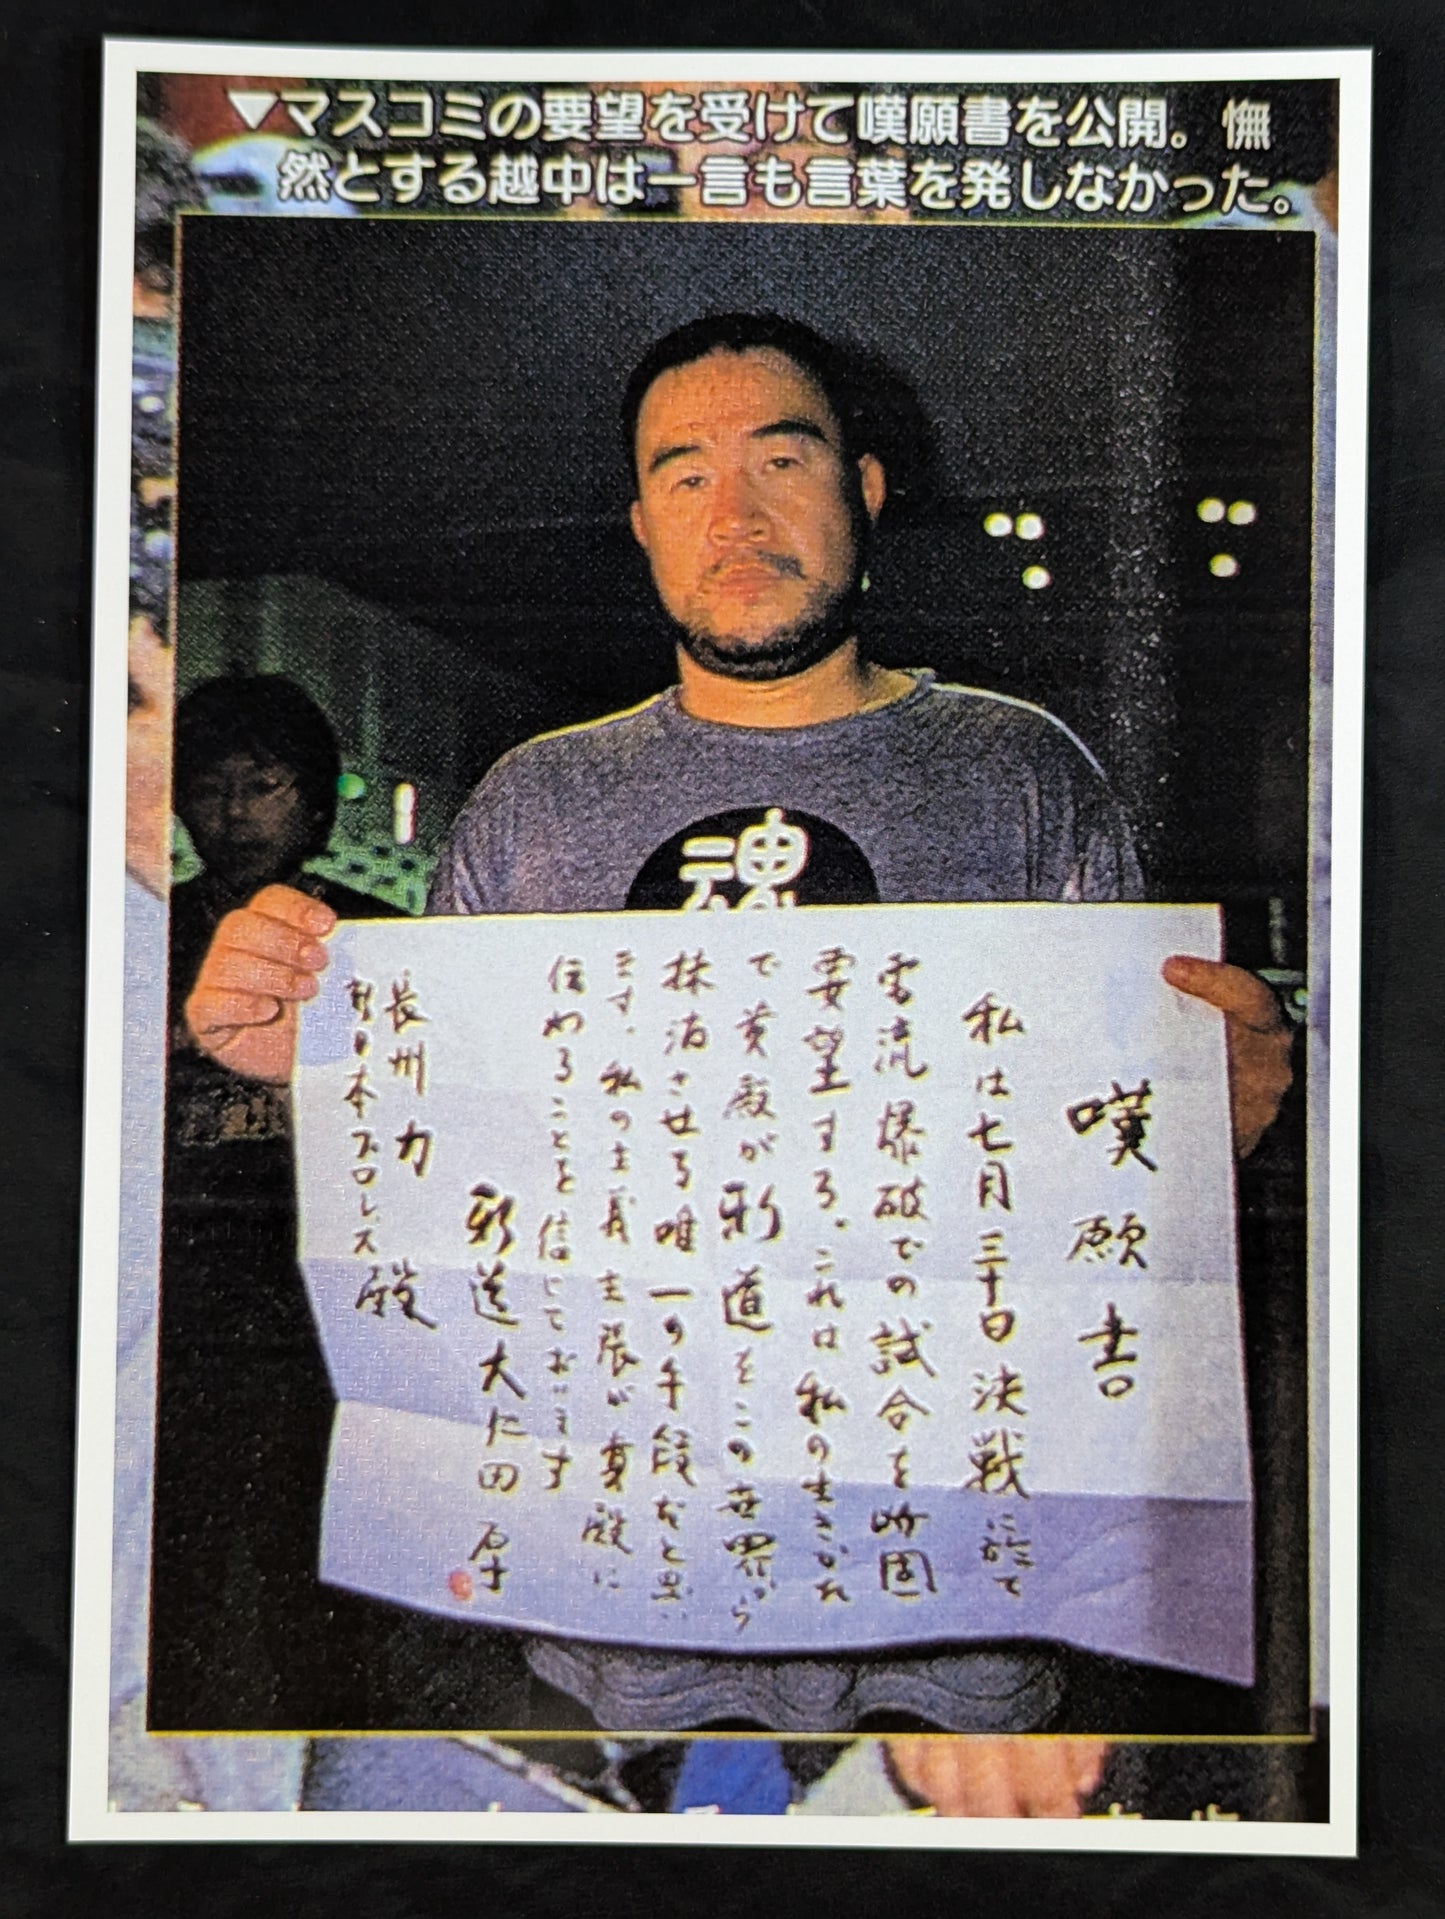 ▼マスコミの要望を受けて嘆願書を公開。憮
然とする越中は一言も言葉を発しなかった。
魂
嘆願書
私は七月三十日決戦に於て
電流爆破での試合を断固
要望する。これは私の
で貴殿が邪道をこの世界から
抹消させる唯一の手段だと思い
ます。私の主義主張が貴殿に
伝わることを信じております
邪道大仁田厚
長州力殿
新日本プロレス